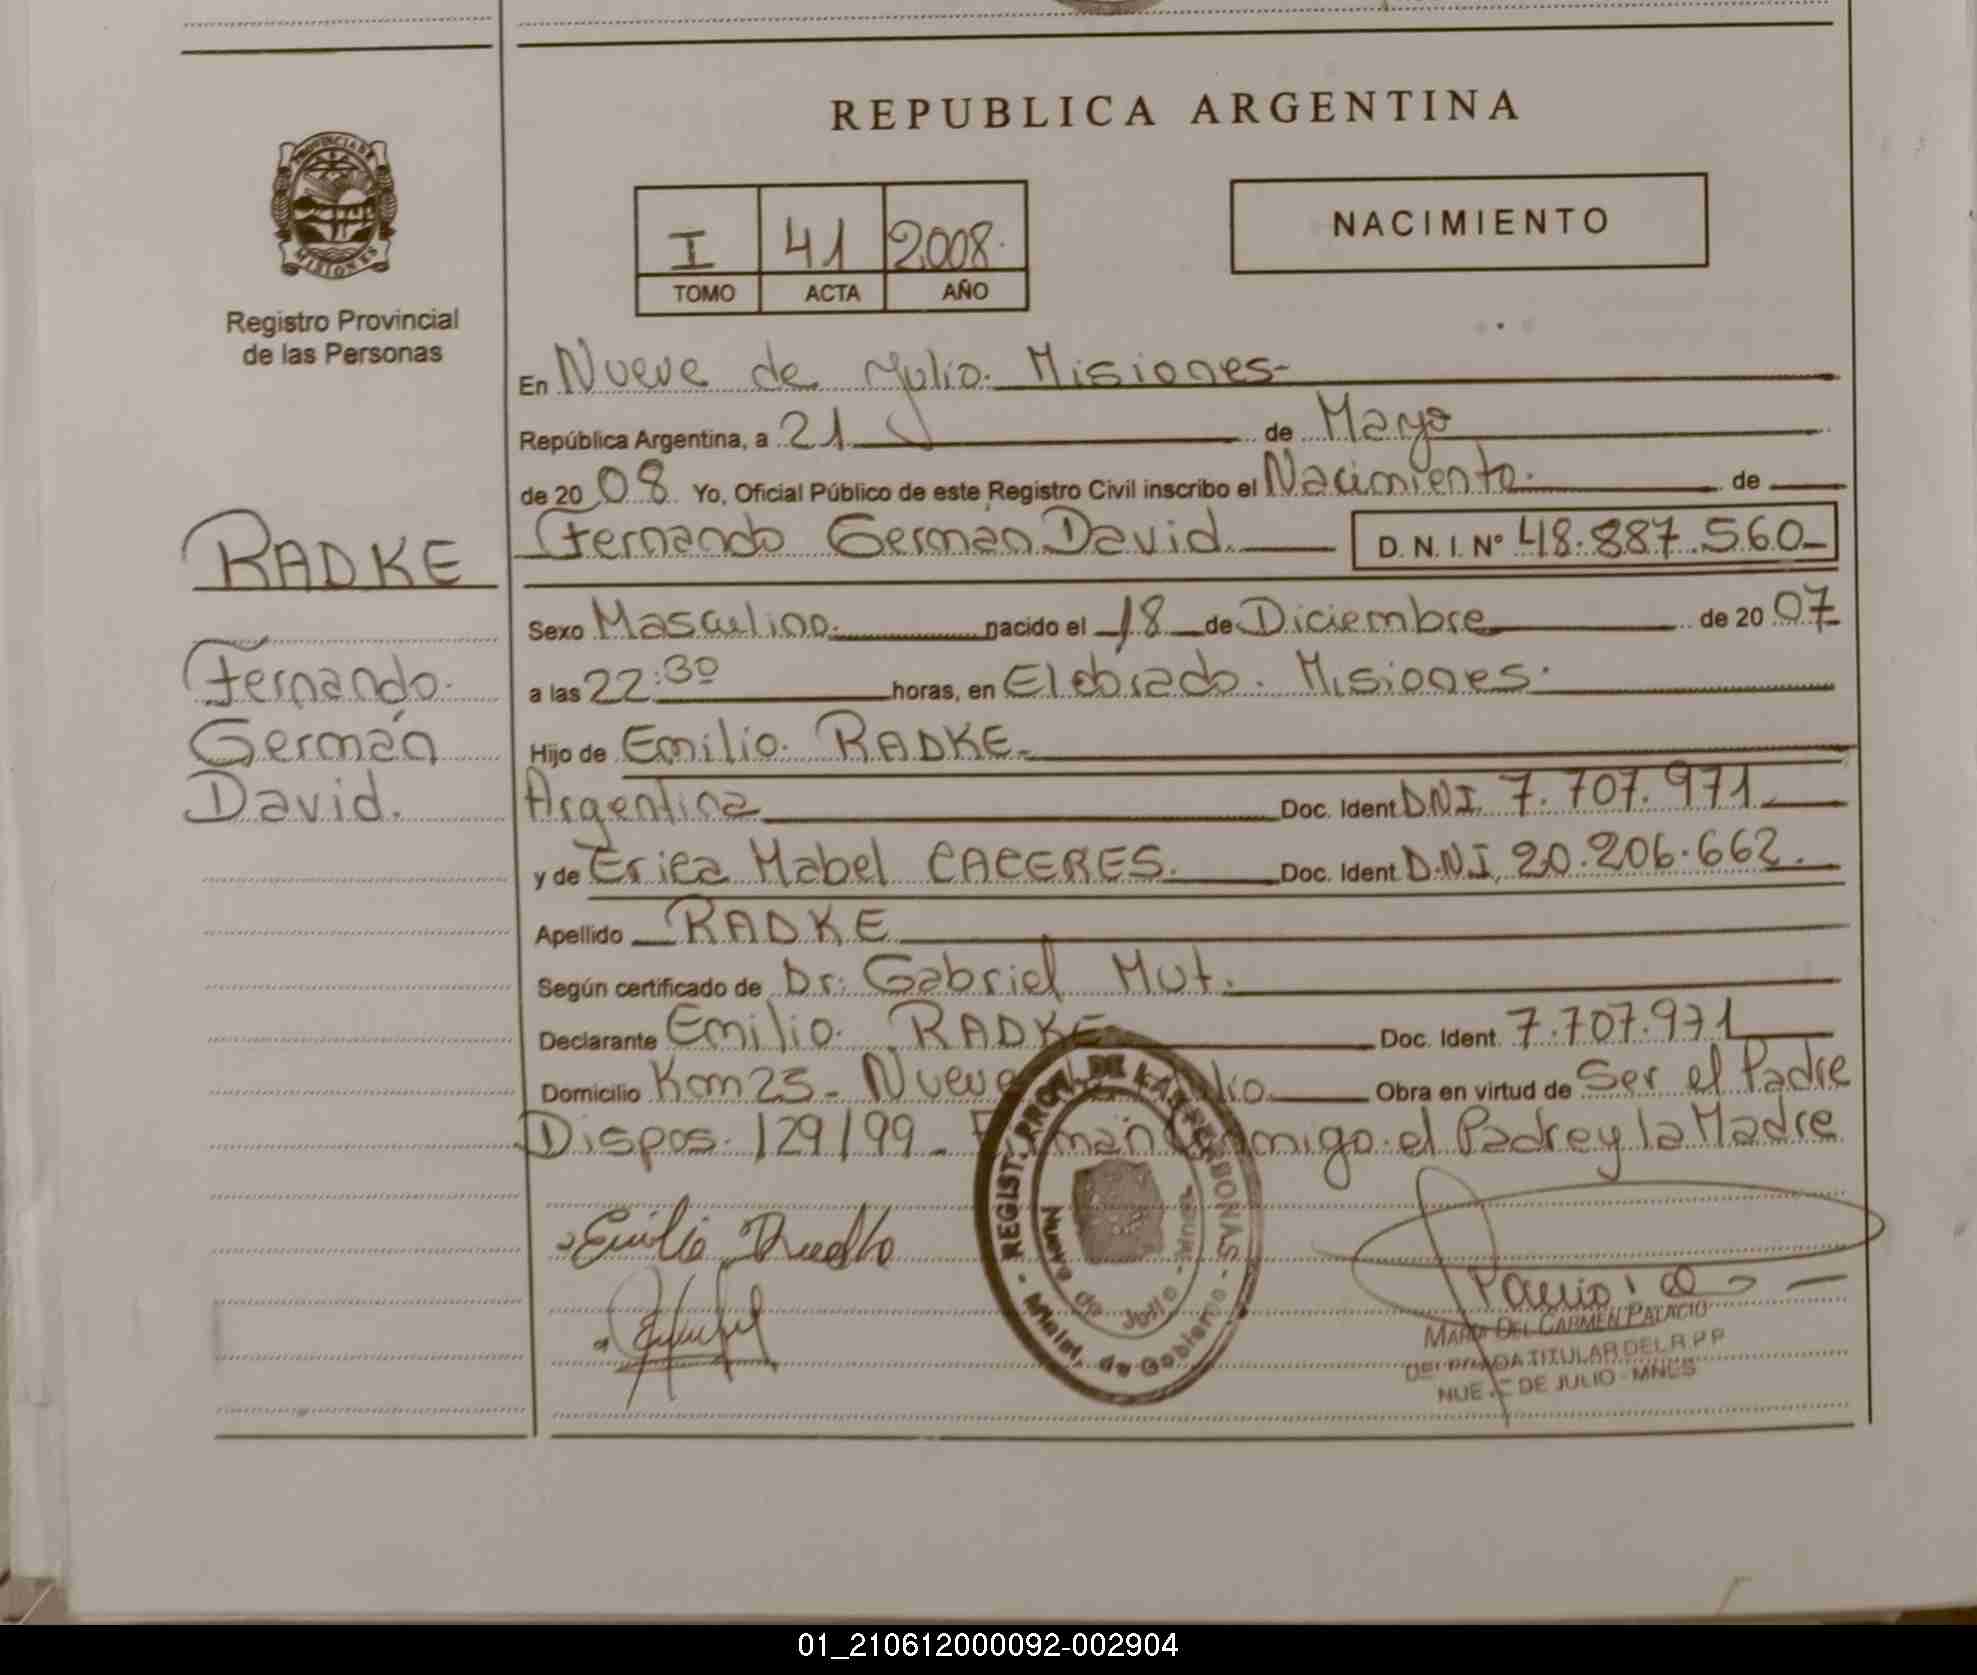 REPUBLICA ARGENTINA
PROVINCIA DE
MISIONES
Registro Provincial
de las Personas
I 41 2008
TOMO ACTA AÑO
NACIMIENTO
En Nueve de Julio. Misiones-
República Argentina, a 21 de Mayo
de 20 08 Yo, Oficial Público de este Registro Civil inscribo el Nacimiento. de
Fernando Germán David. D. N. I. N° 48.887.560-
RADKE
Fernando.
Germán
David.
Sexo Masculino. nacido el 18 de Diciembre de 20 07
a las 22:30 horas, en Eldorado. Misiones.
Hijo de Emilio. RADKE.
Argentina Doc. Ident D.N.I. 7.707.971
y de Erica Mabel CACERES. Doc. Ident D.N.I. 20.206.662.
Apellido RADKE
Según certificado de Dr. Gabriel Mut.
Declarante Emilio. RADKE Doc. Ident. 7.707.971
Domicilio Km 25- Nueve Julio. Obra en virtud de Ser el Padre
Dispos. 129/99- Firman Conmigo. el Padre y la Madre
REGIST. PROV. DE LAS PERSONAS - Minist. de Gobierno -
Nueve de Julio - Mnes.
Emilio
MARIA DEL CARMEN PALACIO
DELEGADA TITULAR DEL R.P.P
NUEVE DE JULIO - MNES
01_210612000092-002904